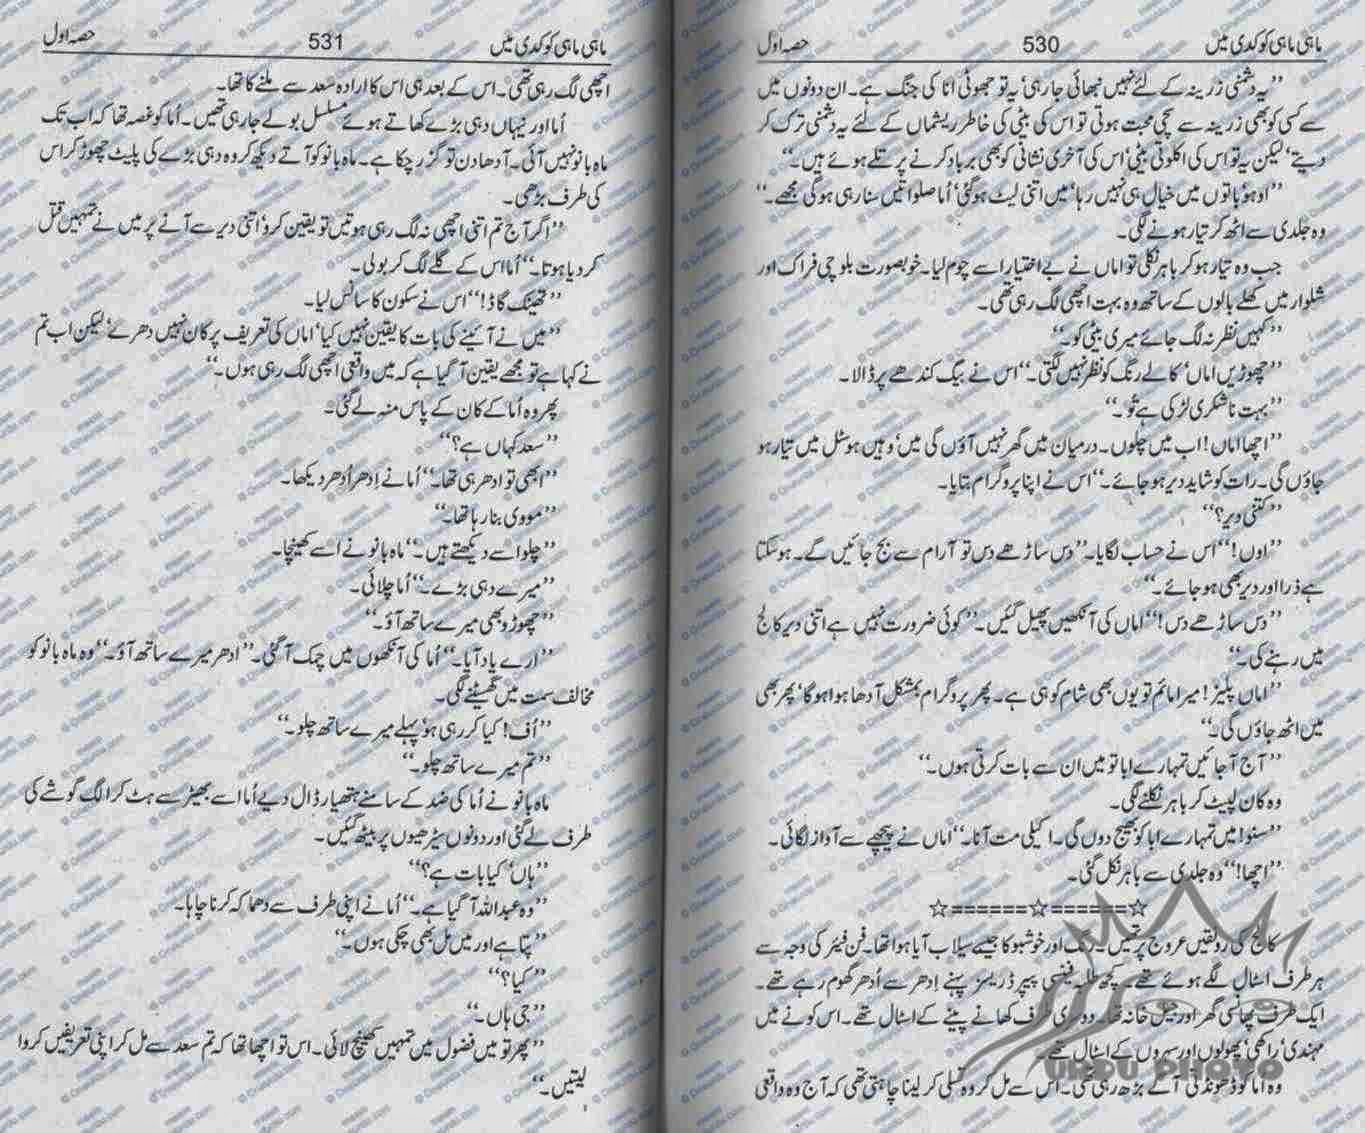 ماہی ماہی کوکدی میں 530 حصہ اول
’’یہ دشمنی زرینہ کے لئے نہیں نبھائی جا رہی‘ یہ تو جھوٹی انا کی جنگ ہے۔ ان دونوں میں
سے کسی کو بھی زرینہ سے سچی محبت ہوتی تو اس کی بیٹی کی خاطر ریشماں کے لئے یہ دشمنی ترک کر
دیتے‘ لیکن یہ تو اس کی اکلوتی بیٹی‘ اس کی آخری نشانی کو بھی برباد کرنے پر تلے ہوئے ہیں۔‘‘
’’اوہو‘ باتوں میں خیال ہی نہیں رہا‘ میں اتنی لیٹ ہو گئی‘ اُما صلواتیں سنا رہی ہو گی مجھے۔‘‘
وہ جلدی سے اٹھ کر تیار ہونے لگی۔
جب وہ تیار ہو کر باہر نکلی تو اماں نے بے اختیار اسے چوم لیا۔ خوبصورت بلوچی فراک اور
شلوار میں کھلے بالوں کے ساتھ وہ بہت اچھی لگ رہی تھی۔
’’کہیں نظر نہ لگ جائے میری بیٹی کو۔‘‘
’’چھوڑیں اماں‘ کالے رنگ کو نظر نہیں لگتی۔‘‘ اس نے بیگ کندھے پر ڈالا۔
’’بہت ناشکری لڑکی ہے تُو۔‘‘
’’اچھا اماں! اب میں چلوں۔ درمیان میں گھر نہیں آؤں گی میں‘ وہیں ہوسٹل میں تیار ہو
جاؤں گی۔ رات کو شاید دیر ہو جائے۔‘‘ اس نے اپنا پروگرام بتایا۔
’’کتنی دیر؟‘‘
’’اوں!‘‘ اس نے حساب لگایا۔ ’’دس ساڑھے دس تو آرام سے بج جائیں گے۔ ہو سکتا
ہے ذرا اور دیر بھی ہو جائے۔‘‘
’’دس ساڑھے دس!‘‘ اماں کی آنکھیں پھیل گئیں۔ ’’کوئی ضرورت نہیں ہے اتنی دیر کالج
میں رہنے کی۔‘‘
’’اماں پلیز! میرا مائم تو یوں بھی شام کو ہی ہے۔ پھر پروگرام بمشکل آدھا ہوا ہوگا‘ پھر بھی
میں اٹھ جاؤں گی۔‘‘
’’آج آ جائیں تمہارے ابا تو میں ان سے بات کرتی ہوں۔‘‘
وہ کان لپیٹ کر باہر نکلنے لگی۔
’’سنو! میں تمہارے ابا کو بھیج دوں گی۔ اکیلی مت آنا۔‘‘ اماں نے پیچھے سے آواز لگائی۔
’’اچھا!‘‘ وہ جلدی سے باہر نکل گئی۔
☆======☆======☆
کالج کی رونقیں عروج پر تھیں۔ رنگ اور خوشبو کا جیسے سیلاب آیا ہوا تھا۔ فن فیئر کی وجہ سے
ہر طرف اسٹال لگے ہوئے تھے۔ کچھ طلبہ فینسی پیپر ڈریسز پہنے اِدھر سے اُدھر گھوم رہے تھے۔
ایک طرف پھانسی گھر اور جیل خانہ تھا۔ دوسری طرف کھانے پینے کے اسٹال تھے۔ اس کونے میں
مہندی‘ راکھی‘ پھولوں اور سہروں کے اسٹال تھے۔
وہ اُما کو ڈھونڈتی آگے بڑھ رہی تھی۔ اس سے مل کر وہ تسلی کر لینا چاہتی تھی کہ آج وہ واقعی
URDU PHOTO
ماہی ماہی کوکدی میں 531 حصہ اول
اچھی لگ رہی تھی۔ اس کے بعد ہی اس کا ارادہ سعد سے ملنے کا تھا۔
اُما اور نیہاں دہی بڑے کھاتے ہوئے مسلسل بولے جا رہی تھیں۔ اُما کو غصہ تھا کہ اب تک
ماہ بانو نہیں آئی۔ آدھا دن تو گزر چکا ہے۔ ماہ بانو کو آتے دیکھ کر وہ دہی بڑے کی پلیٹ چھوڑ کر اس
کی طرف بڑھی۔
’’اگر آج تم اتنی اچھی نہ لگ رہی ہوتیں تو یقین کرو‘ اتنی دیر سے آنے پر میں نے تمہیں قتل
کر دیا ہوتا۔‘‘ اُما اس کے گلے لگ کر بولی۔
’’تھینک گاڈ!‘‘ اس نے سکون کا سانس لیا۔
’’میں نے آئینے کی بات کا یقین نہیں کیا‘ اماں کی تعریف پر کان نہیں دھرے‘ لیکن اب تم
نے کہا ہے تو مجھے یقین آ گیا ہے کہ میں واقعی اچھی لگ رہی ہوں۔‘‘
پھر وہ اُما کے کان کے پاس منہ لے گئی۔
’’سعد کہاں ہے؟‘‘
’’ابھی تو ادھر ہی تھا۔‘‘ اُما نے اِدھر اُدھر دیکھا۔
’’مووی بنا رہا تھا۔‘‘
’’چلو اسے دیکھتے ہیں۔‘‘ ماہ بانو نے اسے کھینچا۔
’’میرے دہی بڑے۔‘‘ اُما چلائی۔
’’چھوڑو بھی میرے ساتھ آؤ۔‘‘
’’ارے یاد آیا۔‘‘ اُما کی آنکھوں میں چمک آ گئی۔ ’’ادھر میرے ساتھ آؤ۔‘‘ وہ ماہ بانو کو
مخالف سمت میں گھسیٹنے لگی۔
’’اُف! کیا کر رہی ہو‘ پہلے میرے ساتھ چلو۔‘‘
’’تم میرے ساتھ چلو۔‘‘
ماہ بانو نے اُما کی ضد کے سامنے ہتھیار ڈال دیے اُما اسے بھیڑ سے ہٹ کر الگ گوشے کی
طرف لے گئی اور دونوں سیڑھیوں پر بیٹھ گئیں۔
’’ہاں‘ کیا بات ہے؟‘‘
’’وہ عبداللہ آ گیا ہے۔‘‘ اُما نے اپنی طرف سے دھماکہ کرنا چاہا۔
’’پتا ہے اور میں مل بھی چکی ہوں۔‘‘
’’کیا؟‘‘
’’جی ہاں۔‘‘
’’پھر تو میں فضول میں تمہیں کھینچ لائی۔ اس تو اچھا تھا کہ تم سعد سے مل کر اپنی تعریفیں کروا
لیتیں۔‘‘